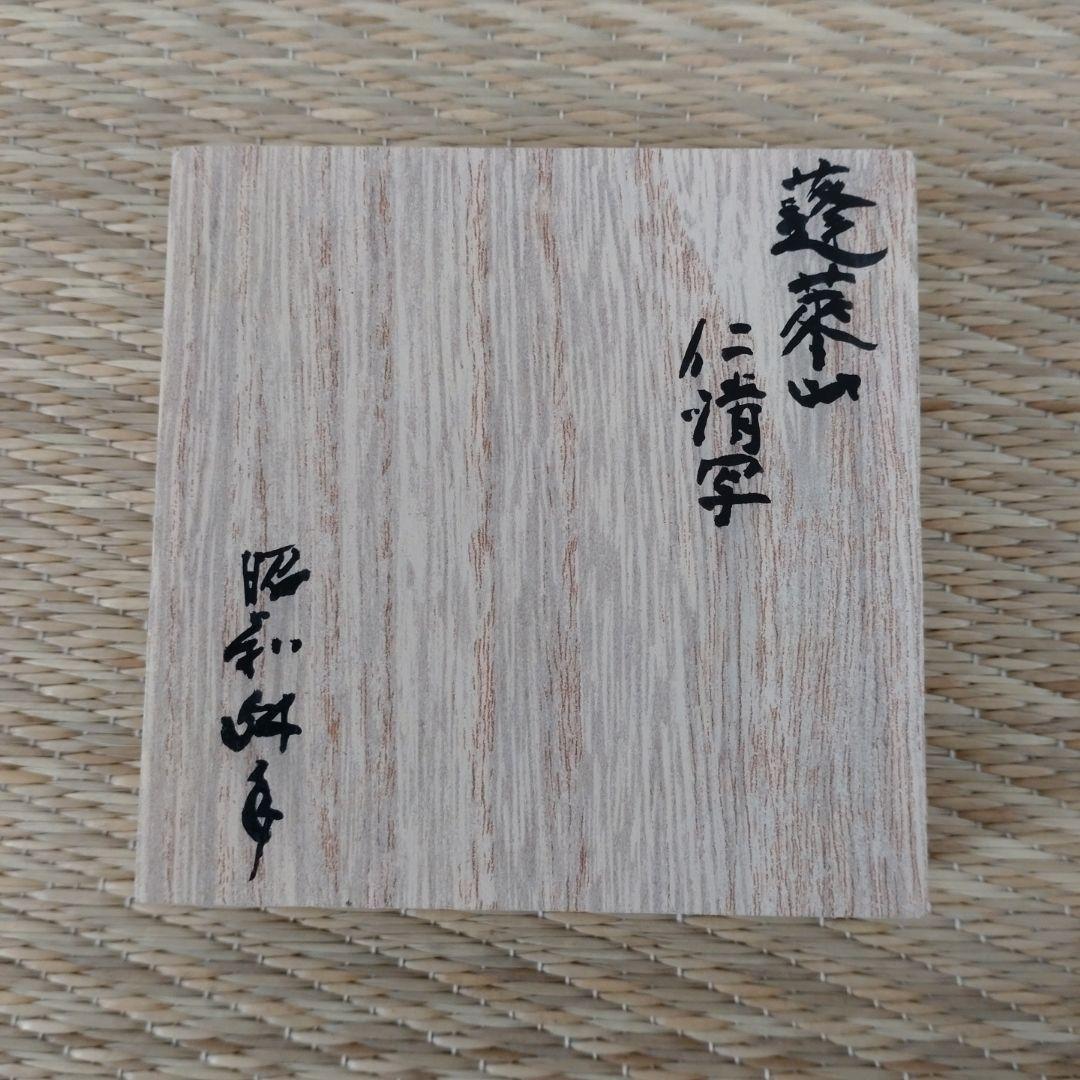 蓬莱山
仁清写
昭和年